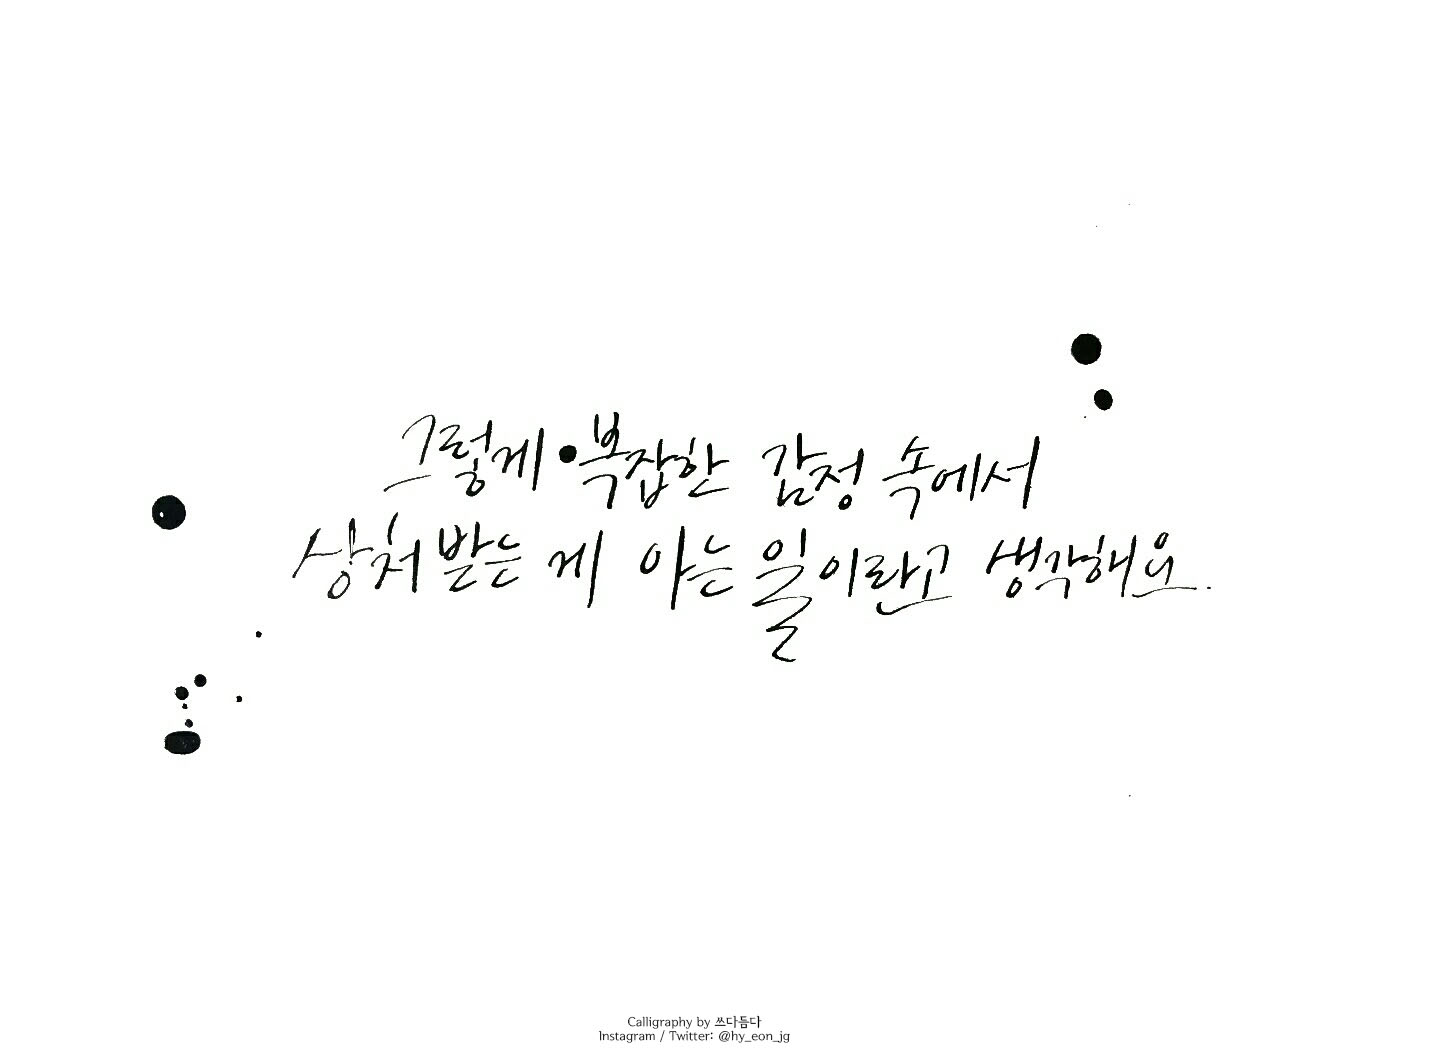 그렇게 복잡한 감정 속에서
상처 받는 게 아는 일이란고 생각해요.
Calligraphy by 쓰다듬다
Instagram / Twitter: @hy_eon_jg